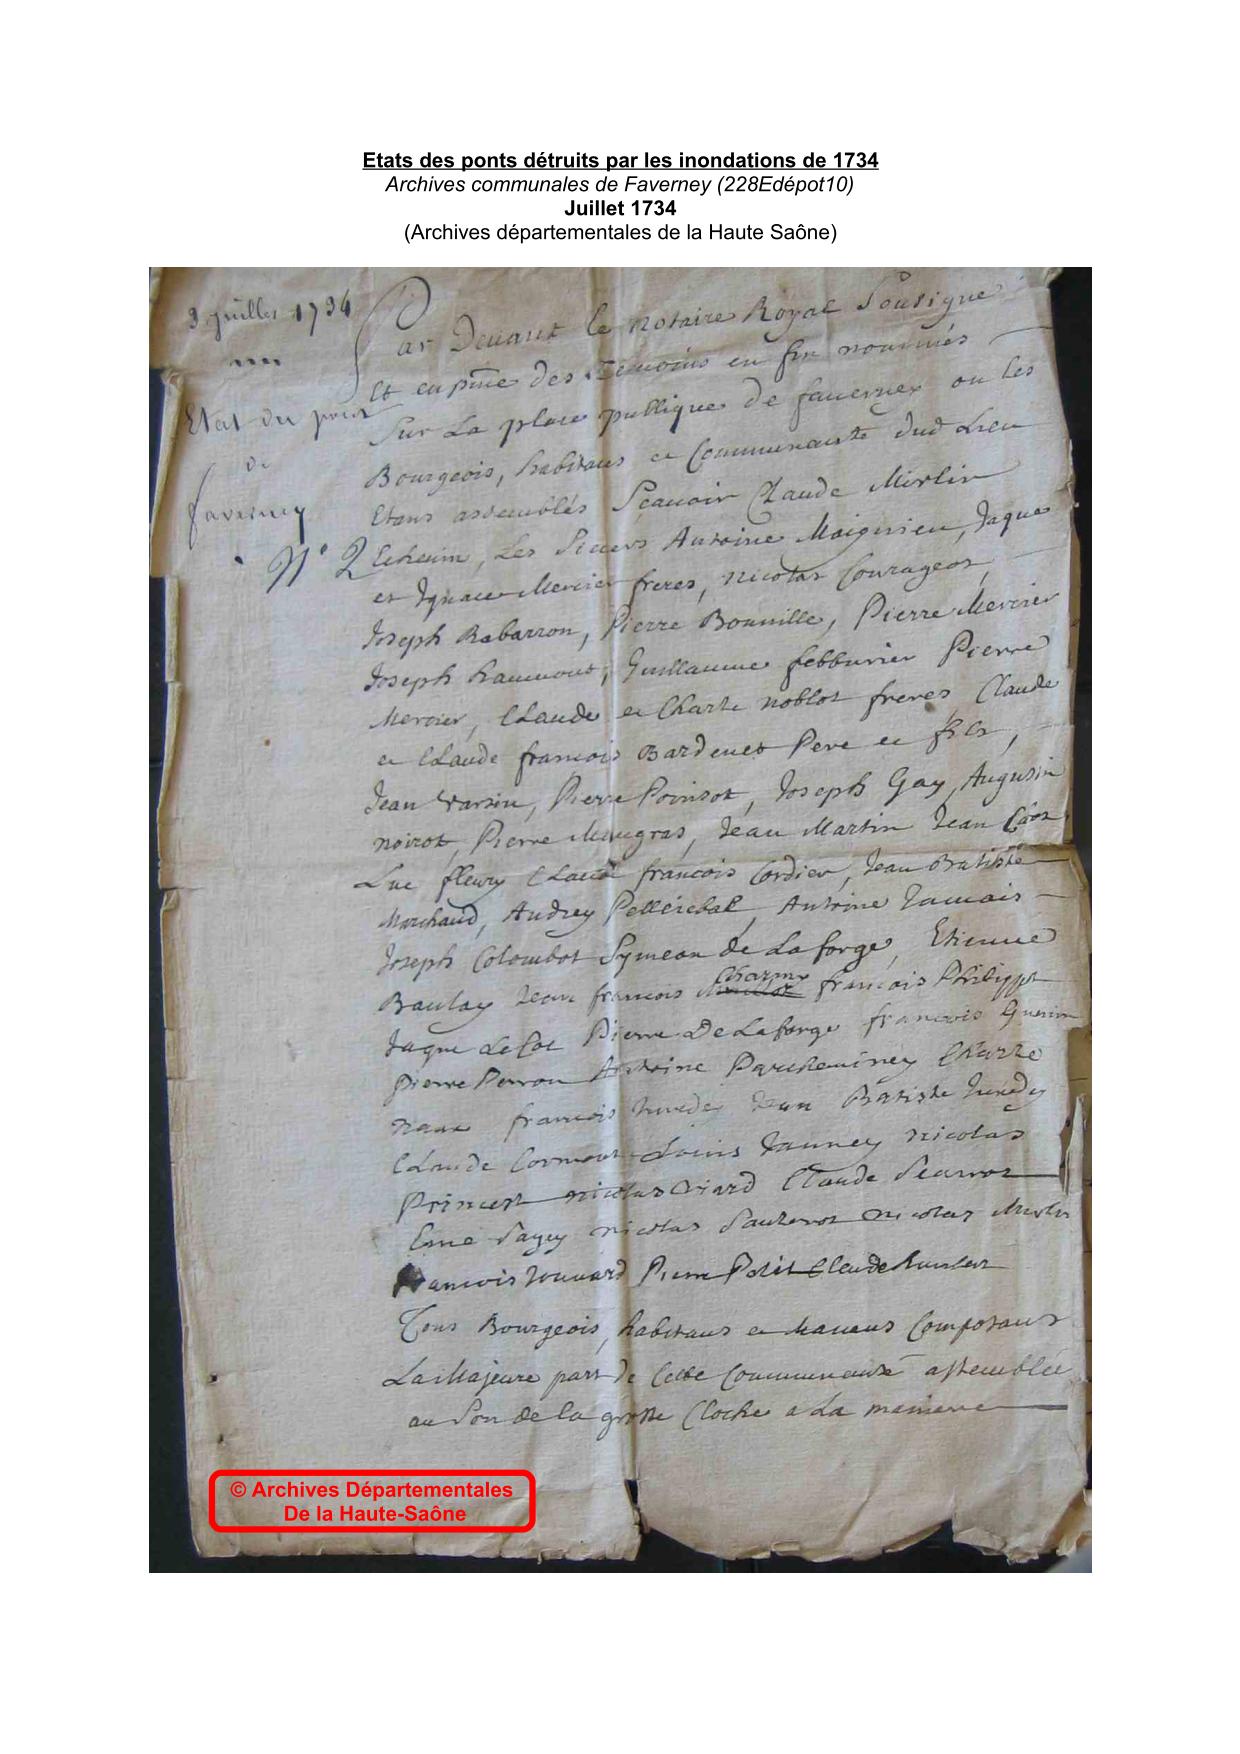 Etats des ponts détruits par les inondations de 1734
Archives communales de Faverney (228Edépot10)
Juillet 1734
(Archives départementales de la Haute Saône)
3 juillet 1734
Etat du pont
de
faverney
N° 2
Par Devant le notaire Royal Soussigné
Et en pñce des Temoins en fin nommés
Sur La place publique de faverney ou les
Bourgeois, habitans et Communauté dud Lieu
Etans assemblés Scavoir Claude Mirlin
Echevin, Les Sieurs Antoine Maignien, Jaque
et Ignace Mercier freres, nicolas Courageot,
Joseph Rabarron, Pierre Bonville, Pierre Mercier
Joseph hammont, Guillaume febburier Pierre
Mercier, Claude et Charle noblot freres Claude
et Claude francois Bardenet Pere et fils,
Jean Varsin, Pierre Poinsot, Joseph Gay, Augustin
noirot, Pierre Maugras, Jean Martin Jean
Luc fleury Claude francois Cordier, Jean Batiste
Marchand, Andrey Pellérebal, Antoine Jamais
Joseph Colombot Symeon de La forge, Etienne
Baulay Jean francois Charmy francois Philippe
Jaque Le Coc Pierre De Laforge francois Guerin
Pierre Perron Antoine Parcheminey Charle
francois Jean Batiste
Claude Cormont Louis Jauney nicolas
Princest nicolas Viard Claude
Emé Sagey nicolas nicolas Mirlin
francois Jouvard Pierre Petit Claude
Tous Bourgeois, habitans et Manans Composans
La Majeure part de Cette Communauté assemblée
au Son de la grosse Cloche a La maniere
© Archives Départementales
De la Haute-Saône